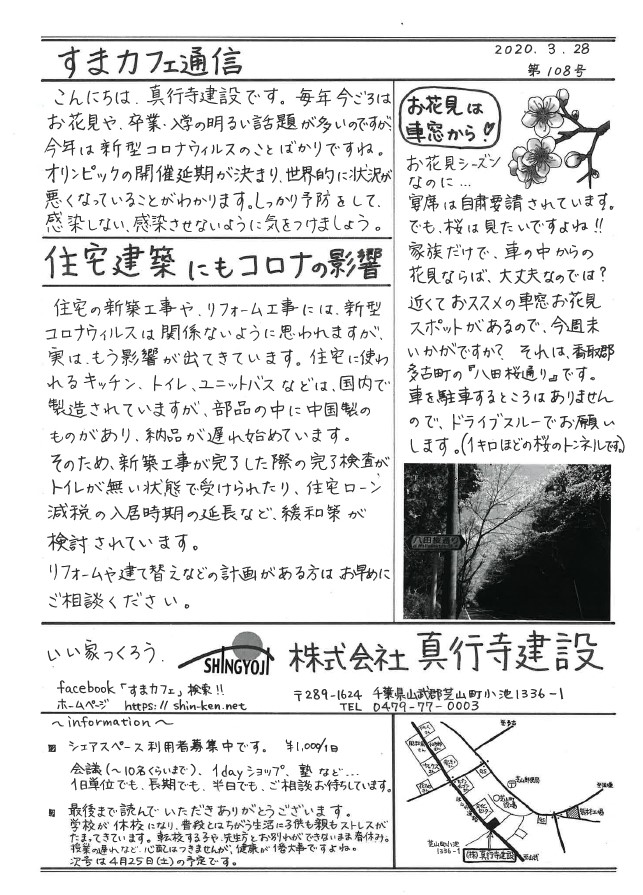 すまカフェ通信
2020.3.28
第108号
こんにちは、真行寺建設です。毎年今ごろは
お花見や、卒業・入学の明るい話題が多いのですが、
今年は新型コロナウィルスのことばかりですね。
オリンピックの開催延期が決まり、世界的に状況が
悪くなっていることがわかります。しっかり予防をして、
感染しない、感染させないように気をつけましょう。
住宅建築にもコロナの影響
住宅の新築工事や、リフォーム工事には、新型
コロナウィルスは関係ないように思われますが、
実は、もう影響が出てきています。住宅に使わ
れるキッチン、トイレ、ユニットバスなどは、国内で
製造されていますが、部品の中に中国製の
ものがあり、納品が遅れ始めています。
そのため、新築工事が完了した際の完了検査が
トイレが無い状態で受けられたり、住宅ローン
減税の入居時期の延長など、緩和策が
検討されています。
リフォームや建て替えなどの計画がある方はお早めに
ご相談ください。
お花見は
車窓から!
お花見シーズン
なのに…
宴席は自粛要請されています。
でも、桜は見たいですよね!!
家族だけで、車の中からの
花見ならば、大丈夫なのでは?
近くておススメの車窓お花見
スポットがあるので、今週末
いかがですか? それは、香取郡
多古町の『八田桜通り』です。
車を駐車するところはありません
ので、ドライブスルーでお願い
します。(1キロほどの桜のトンネルです)
八田桜通り
いい家つくろう。
SHINGYOJI
株式会社 真行寺建設
facebook「すまカフェ」検索!!
ホームページ https://shin-ken.net
〒289-1624 千葉県山武郡芝山町小池1336-1
TEL 0479-77-0003
~information~
シェアスペース利用者募集中です。 ¥1,000/1日
会議(~10名くらいまで)、1dayショップ、塾など…
1日単位でも、長期でも、半日でも、ご相談お待ちしています。
最後まで読んでいただきありがとうございます。
学校が休校になり、普段とはちがう生活に子供も親もストレスが
たまってきています。転校する子や、先生方とお別れができないまま春休み。
授業の遅れなど、心配はつきませんが、健康が1番大事ですよね。
次号は4月25日(土)の予定です。
芝山郵便局
芝山町小池
1336-1
(株)真行寺建設